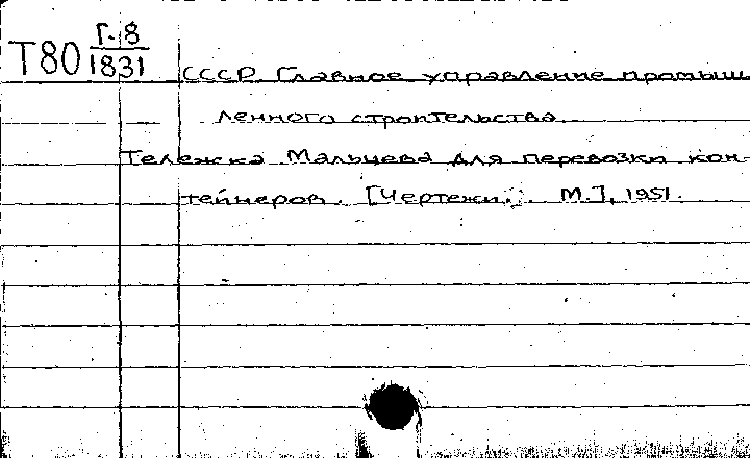 Т80 Г-8
1831
СССР. Главное управление промыш
ленного строительства.
Тележка Мальцева для перевозки кон-
тейнеров. [Чертежи. М.], 1951.